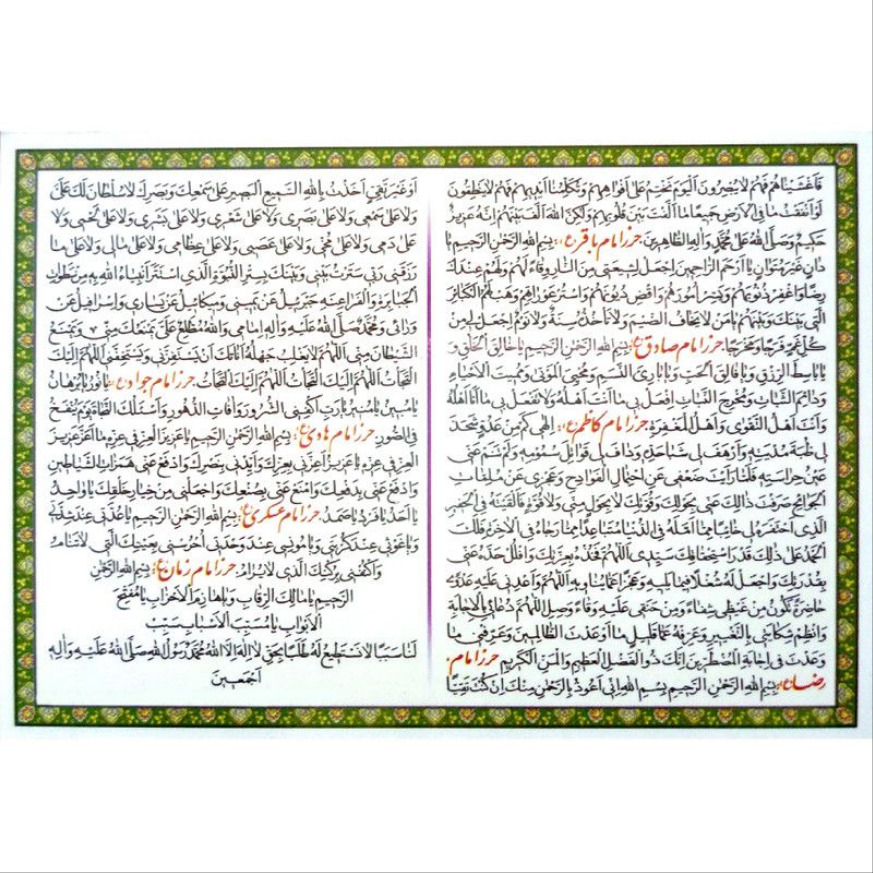 فَأَغْشَيْنَاهُمْ فَهُمْ لَا يُبْصِرُونَ اَلْيَوْمَ نَخْتِمُ عَلَى أَفْوَاهِهِمْ وَتُكَلِّمُنَا أَيْدِيهِمْ فَهُمْ لَا يَنْطِقُونَ
لَوْ أَنْفَقْتَ مَا فِي الْأَرْضِ جَمِيعًا مَا أَلَّفْتَ بَيْنَ قُلُوبِهِمْ وَلَكِنَّ اللهَ أَلَّفَ بَيْنَهُمْ إِنَّهُ عَزِيزٌ
حَكِيمٌ وَصَلَّى اللهُ عَلَى مُحَمَّدٍ وَآلِهِ الطَّاهِرِينَ حرز امام باقر(ع): بِسْمِ اللهِ الرَّحْمٰنِ الرَّحِيمِ يَا
دَانٍ غَيْرَ مُتَوَانٍ يَا أَرْحَمَ الرَّاحِمِينَ اجْعَلْ لِشِيعَتِي مِنَ النَّارِ وِقَاءً لَهُمْ وَلَهُمْ عِنْدَكَ
رِضًا وَاغْفِرْ ذُنُوبَهُمْ وَيَسِّرْ أُمُورَهُمْ وَاقْضِ دُيُونَهُمْ وَاسْتُرْ عَوْرَاتِهِمْ وَهَبْ لَهُمُ الْكَبَائِرَ
الَّتِي بَيْنَكَ وَبَيْنَهُمْ يَا مَنْ لَا يَخَافُ الضَّيْمَ وَلَا تَأْخُذُهُ سِنَةٌ وَلَا نَوْمٌ اجْعَلْ لِي مِنْ
كُلِّ غَمٍّ فَرَجًا وَمَخْرَجًا حرز امام صادق(ع): بِسْمِ اللهِ الرَّحْمٰنِ الرَّحِيمِ يَا خَالِقَ الْخَلْقِ وَ
يَا بَاسِطَ الرِّزْقِ وَيَا فَالِقَ الْحَبِّ وَيَا بَارِئَ النَّسَمِ وَمُحْيِيَ الْمَوْتَى وَمُمِيتَ الْأَحْيَاءِ
وَدَائِمَ الثَّبَاتِ وَمُخْرِجَ النَّبَاتِ افْعَلْ بِي مَا أَنْتَ أَهْلُهُ وَلَا تَفْعَلْ بِي مَا أَنَا أَهْلُهُ
وَأَنْتَ أَهْلُ التَّقْوَى وَأَهْلُ الْمَغْفِرَةِ حرز امام کاظم(ع): إِلٰهِي كَمْ مِنْ عَدُوٍّ شَحَذَ
لِي ظُبَةَ مُدْيَتِهِ وَأَرْهَفَ لِي شَبَا حَدِّهِ وَدَافَ لِي قَوَاتِلَ سُمُومِهِ وَلَمْ تَنَمْ عَنِّي
عَيْنُ حِرَاسَتِهِ فَلَمَّا رَأَيْتَ ضَعْفِي عَنِ احْتِمَالِ الْفَوَادِحِ وَعَجْزِي عَنْ مُلِمَّاتِ
الْجَوَائِحِ صَرَفْتَ ذَلِكَ عَنِّي بِحَوْلِكَ وَقُوَّتِكَ لَا بِحَوْلٍ مِنِّي وَلَا قُوَّةٍ فَأَلْقَيْتَهُ فِي الْحَفِيرِ
الَّذِي احْتَفَرَهُ لِي خَائِبًا مِمَّا أَمَّلَهُ فِي الدُّنْيَا مُتَبَاعِدًا مِمَّا رَجَاهُ فِي الْآخِرَةِ فَلَكَ
الْحَمْدُ عَلَى ذَلِكَ قَدْرَ اسْتِحْقَاقِكَ سَيِّدِي اللّٰهُمَّ فَخُذْهُ بِعِزَّتِكَ وَافْلُلْ حَدَّهُ عَنِّي
بِقُدْرَتِكَ وَاجْعَلْ لَهُ شُغْلًا فِيمَا يَلِيهِ وَعَجْزًا عَمَّا يُنَاوِيهِ اللّٰهُمَّ وَأَعْدِنِي عَلَيْهِ عَدْوَى
حَاضِرَةً تَكُونُ مِنْ غَيْظِي شِفَاءً وَمِنْ حَنَقِي عَلَيْهِ وَفَاءً وَصِلِ اللّٰهُمَّ دُعَائِي بِالْإِجَابَةِ
وَانْظِمْ شِكَايَتِي بِالتَّغْيِيرِ وَعَرِّفْهُ عَمَّا قَلِيلٍ مَا أَوْعَدْتَ الظَّالِمِينَ وَعَرِّفْنِي مَا
وَعَدْتَ فِي إِجَابَةِ الْمُضْطَرِّينَ إِنَّكَ ذُو الْفَضْلِ الْعَظِيمِ وَالْمَنِّ الْكَرِيمِ حرز امام
رضا(ع): بِسْمِ اللهِ الرَّحْمٰنِ الرَّحِيمِ بِسْمِ اللهِ إِنِّي أَعُوذُ بِالرَّحْمٰنِ مِنْكَ إِنْ كُنْتَ تَقِيًّا
أَوْ غَيْرَ تَقِيٍّ أَخَذْتُ بِاللهِ السَّمِيعِ الْبَصِيرِ عَلَى سَمْعِكَ وَبَصَرِكَ لَا سُلْطَانَ لَكَ عَلَيَّ
وَلَا عَلَى سَمْعِي وَلَا عَلَى بَصَرِي وَلَا عَلَى شَعْرِي وَلَا عَلَى بَشَرِي وَلَا عَلَى لَحْمِي وَلَا
عَلَى دَمِي وَلَا عَلَى مُخِّي وَلَا عَلَى عَصَبِي وَلَا عَلَى عِظَامِي وَلَا عَلَى مَالِي وَلَا عَلَى مَا
رَزَقَنِي رَبِّي سَتَرْتُ بَيْنِي وَبَيْنَكَ بِسِتْرِ النُّبُوَّةِ الَّذِي اسْتَتَرَ أَنْبِيَاءُ اللهِ بِهِ مِنْ سَطَوَاتِ
الْجَبَابِرَةِ وَالْفَرَاعِنَةِ جَبْرَئِيلُ عَنْ يَمِينِي وَمِيكَائِيلُ عَنْ يَسَارِي وَإِسْرَافِيلُ عَنْ
وَرَائِي وَمُحَمَّدٌ صَلَّى اللهُ عَلَيْهِ وَآلِهِ أَمَامِي وَاللهُ مُطَّلِعٌ عَلَيَّ يَمْنَعُكَ مِنِّي وَيَمْنَعُ
الشَّيْطَانَ مِنِّي اللّٰهُمَّ لَا يَغْلِبُ جَهْلُهُ أَنَاتَكَ أَنْ يَسْتَفِزَّنِي وَيَسْتَخِفَّنِي اللّٰهُمَّ إِلَيْكَ
الْتَجَأْتُ اللّٰهُمَّ إِلَيْكَ الْتَجَأْتُ اللّٰهُمَّ إِلَيْكَ الْتَجَأْتُ حرز امام جواد(ع): يَا نُورُ يَا بُرْهَانُ
يَا مُبِينُ يَا مُنِيرُ يَا رَبِّ اكْفِنِي الشُّرُورَ وَآفَاتِ الدُّهُورِ وَأَسْأَلُكَ النَّجَاةَ يَوْمَ يُنْفَخُ
فِي الصُّورِ حرز امام هادی(ع): بِسْمِ اللهِ الرَّحْمٰنِ الرَّحِيمِ يَا عَزِيزَ الْعِزِّ فِي عِزِّهِ مَا أَعَزَّ عَزِيزَ
الْعِزِّ فِي عِزِّهِ يَا عَزِيزُ أَعِزَّنِي بِعِزِّكَ وَأَيِّدْنِي بِنَصْرِكَ وَادْفَعْ عَنِّي هَمَزَاتِ الشَّيَاطِينِ
وَادْفَعْ عَنِّي بِدَفْعِكَ وَامْنَعْ عَنِّي بِصُنْعِكَ وَاجْعَلْنِي مِنْ خِيَارِ خَلْقِكَ يَا وَاحِدُ
يَا أَحَدُ يَا فَرْدُ يَا صَمَدُ حرز امام عسکری(ع): بِسْمِ اللهِ الرَّحْمٰنِ الرَّحِيمِ يَا عُدَّتِي عِنْدَ شِدَّتِي
وَيَا غَوْثِي عِنْدَ كُرْبَتِي وَيَا مُونِسِي عِنْدَ وَحْدَتِي اُحْرُسْنِي بِعَيْنِكَ الَّتِي لَا تَنَامُ
وَاكْنُفْنِي بِرُكْنِكَ الَّذِي لَا يُرَامُ حرز امام زمان(ع): بِسْمِ اللهِ الرَّحْمٰنِ
الرَّحِيمِ يَا مَالِكَ الرِّقَابِ وَيَا هَازِمَ الْأَحْزَابِ يَا مُفَتِّحَ
الْأَبْوَابِ يَا مُسَبِّبَ الْأَسْبَابِ سَبِّبْ
لَنَا سَبَبًا لَا نَسْتَطِيعُ لَهُ طَلَبًا بِحَقِّ لَا إِلٰهَ إِلَّا اللهُ مُحَمَّدٌ رَسُولُ اللهِ صَلَّى اللهُ عَلَيْهِ وَآلِهِ
أَجْمَعِينَ